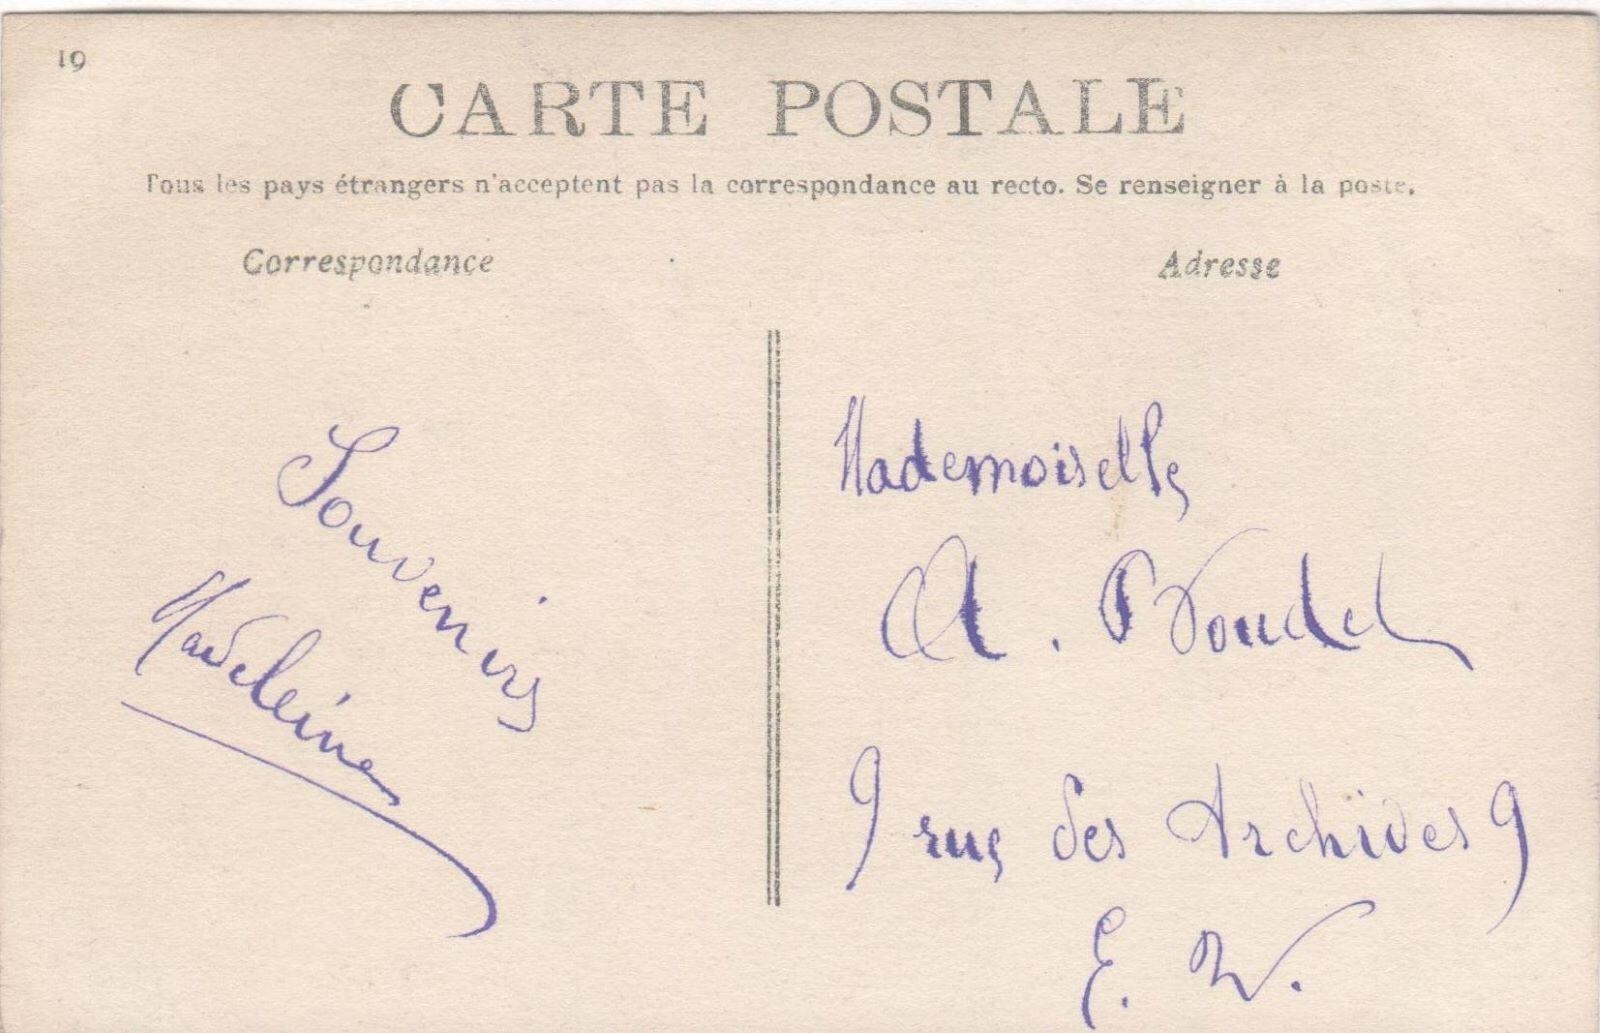 19
CARTE POSTALE
Tous les pays étrangers n'acceptent pas la correspondance au recto. Se renseigner à la poste.
Correspondance
Souvenirs
Madeleine
Adresse
Mademoiselle
A.
9 rue des Archives 9
E. V.